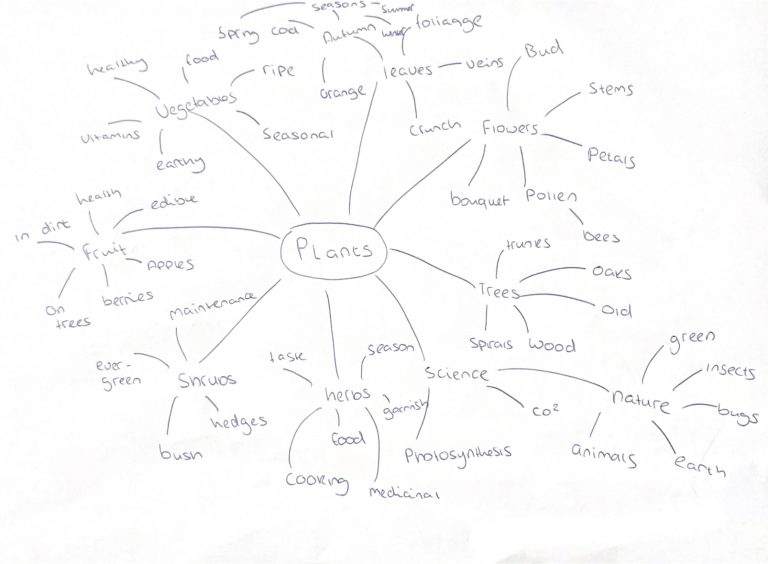 seasons
Summer
Spring
cold
Autumn
winter
foliagge
orange
leaves
veins
crunch
healthy
food
ripe
Vegetables
vitamins
earthy
Seasonal
Bud
Stems
Flowers
Petals
bouquet
Pollen
bees
health
edible
in dirt
Fruit
Apples
on
trees
berries
Plants
trunks
Trees
oaks
old
Spirals
wood
maintenance
ever-
green
Shrubs
hedges
bush
season
herbs
garnish
food
cooking
medicinal
Science
CO²
Photosynthesis
nature
green
insects
bugs
animals
earth